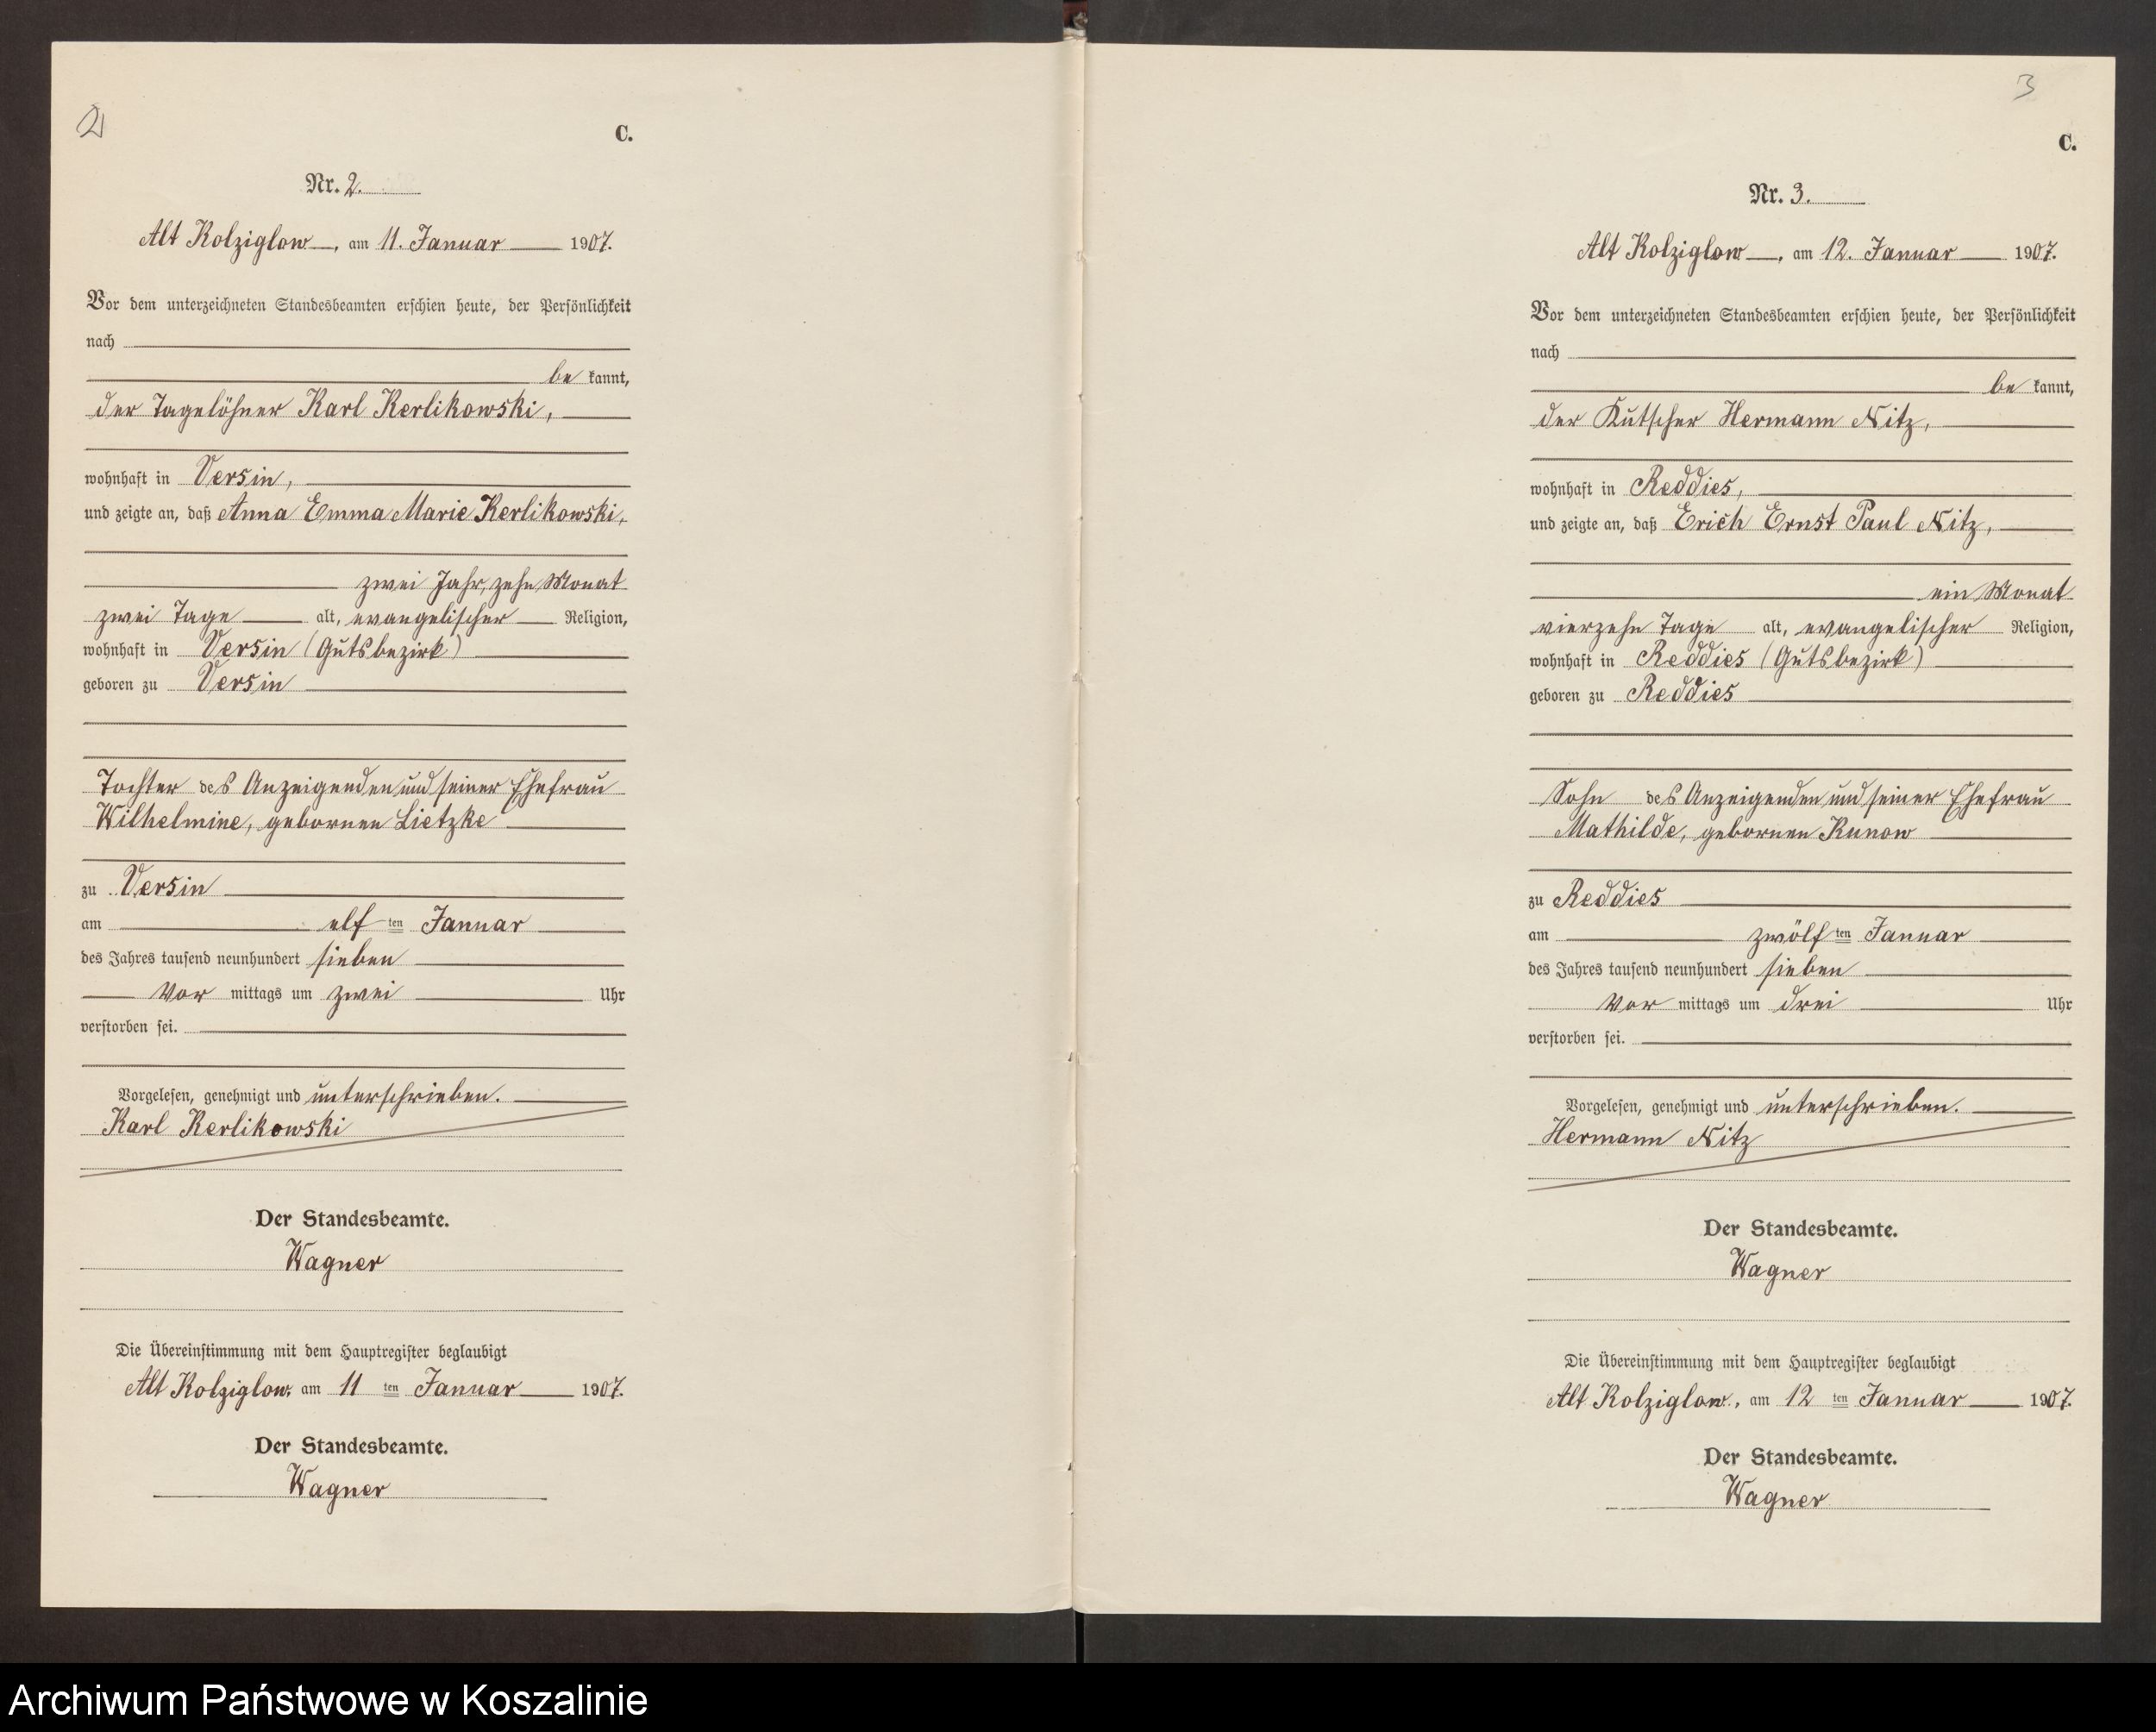 2
C.
Nr. 2.
Alt Kolziglow, am 11. Januar 1907.
Vor dem unterzeichneten Standesbeamten erschien heute, der Persönlichkeit
nach
be kannt,
der Tagelöhner Karl Kerlikowski,
wohnhaft in Versin,
und zeigte an, daß Anna Emma Marie Kerlikowski,
zwei Jahr, zehn Monat
zwei Tage alt, evangelischer Religion,
wohnhaft in Versin (Gutsbezirk)
geboren zu Versin
Tochter des Anzeigenden und seiner Ehefrau
Wilhelmine, gebornen Lietzke
zu Versin
am elf ten Januar
des Jahres tausend neunhundert sieben
Vor mittags um zwei Uhr
verstorben sei.
Vorgelesen, genehmigt und unterschrieben.
Karl Kerlikowski
Der Standesbeamte.
Wagner
Die Übereinstimmung mit dem Hauptregister beglaubigt
Alt Kolziglow, am 11 ten Januar 1907.
Der Standesbeamte.
Wagner
3
C.
Nr. 3.
Alt Kolziglow, am 12. Januar 1907.
Vor dem unterzeichneten Standesbeamten erschien heute, der Persönlichkeit
nach
be kannt,
der Kutscher Hermann Nitz,
wohnhaft in Reddies,
und zeigte an, daß Erich Ernst Paul Nitz,
ein Monat
vierzehn Tage alt, evangelischer Religion,
wohnhaft in Reddies (Gutsbezirk)
geboren zu Reddies
Sohn des Anzeigenden und seiner Ehefrau
Mathilde, gebornen Kunow
zu Reddies
am zwölf ten Januar
des Jahres tausend neunhundert sieben
Vor mittags um drei Uhr
verstorben sei.
Vorgelesen, genehmigt und unterschrieben.
Hermann Nitz
Der Standesbeamte.
Wagner
Die Übereinstimmung mit dem Hauptregister beglaubigt
Alt Kolziglow, am 12 ten Januar 1907.
Der Standesbeamte.
Wagner
Archiwum Państwowe w Koszalinie